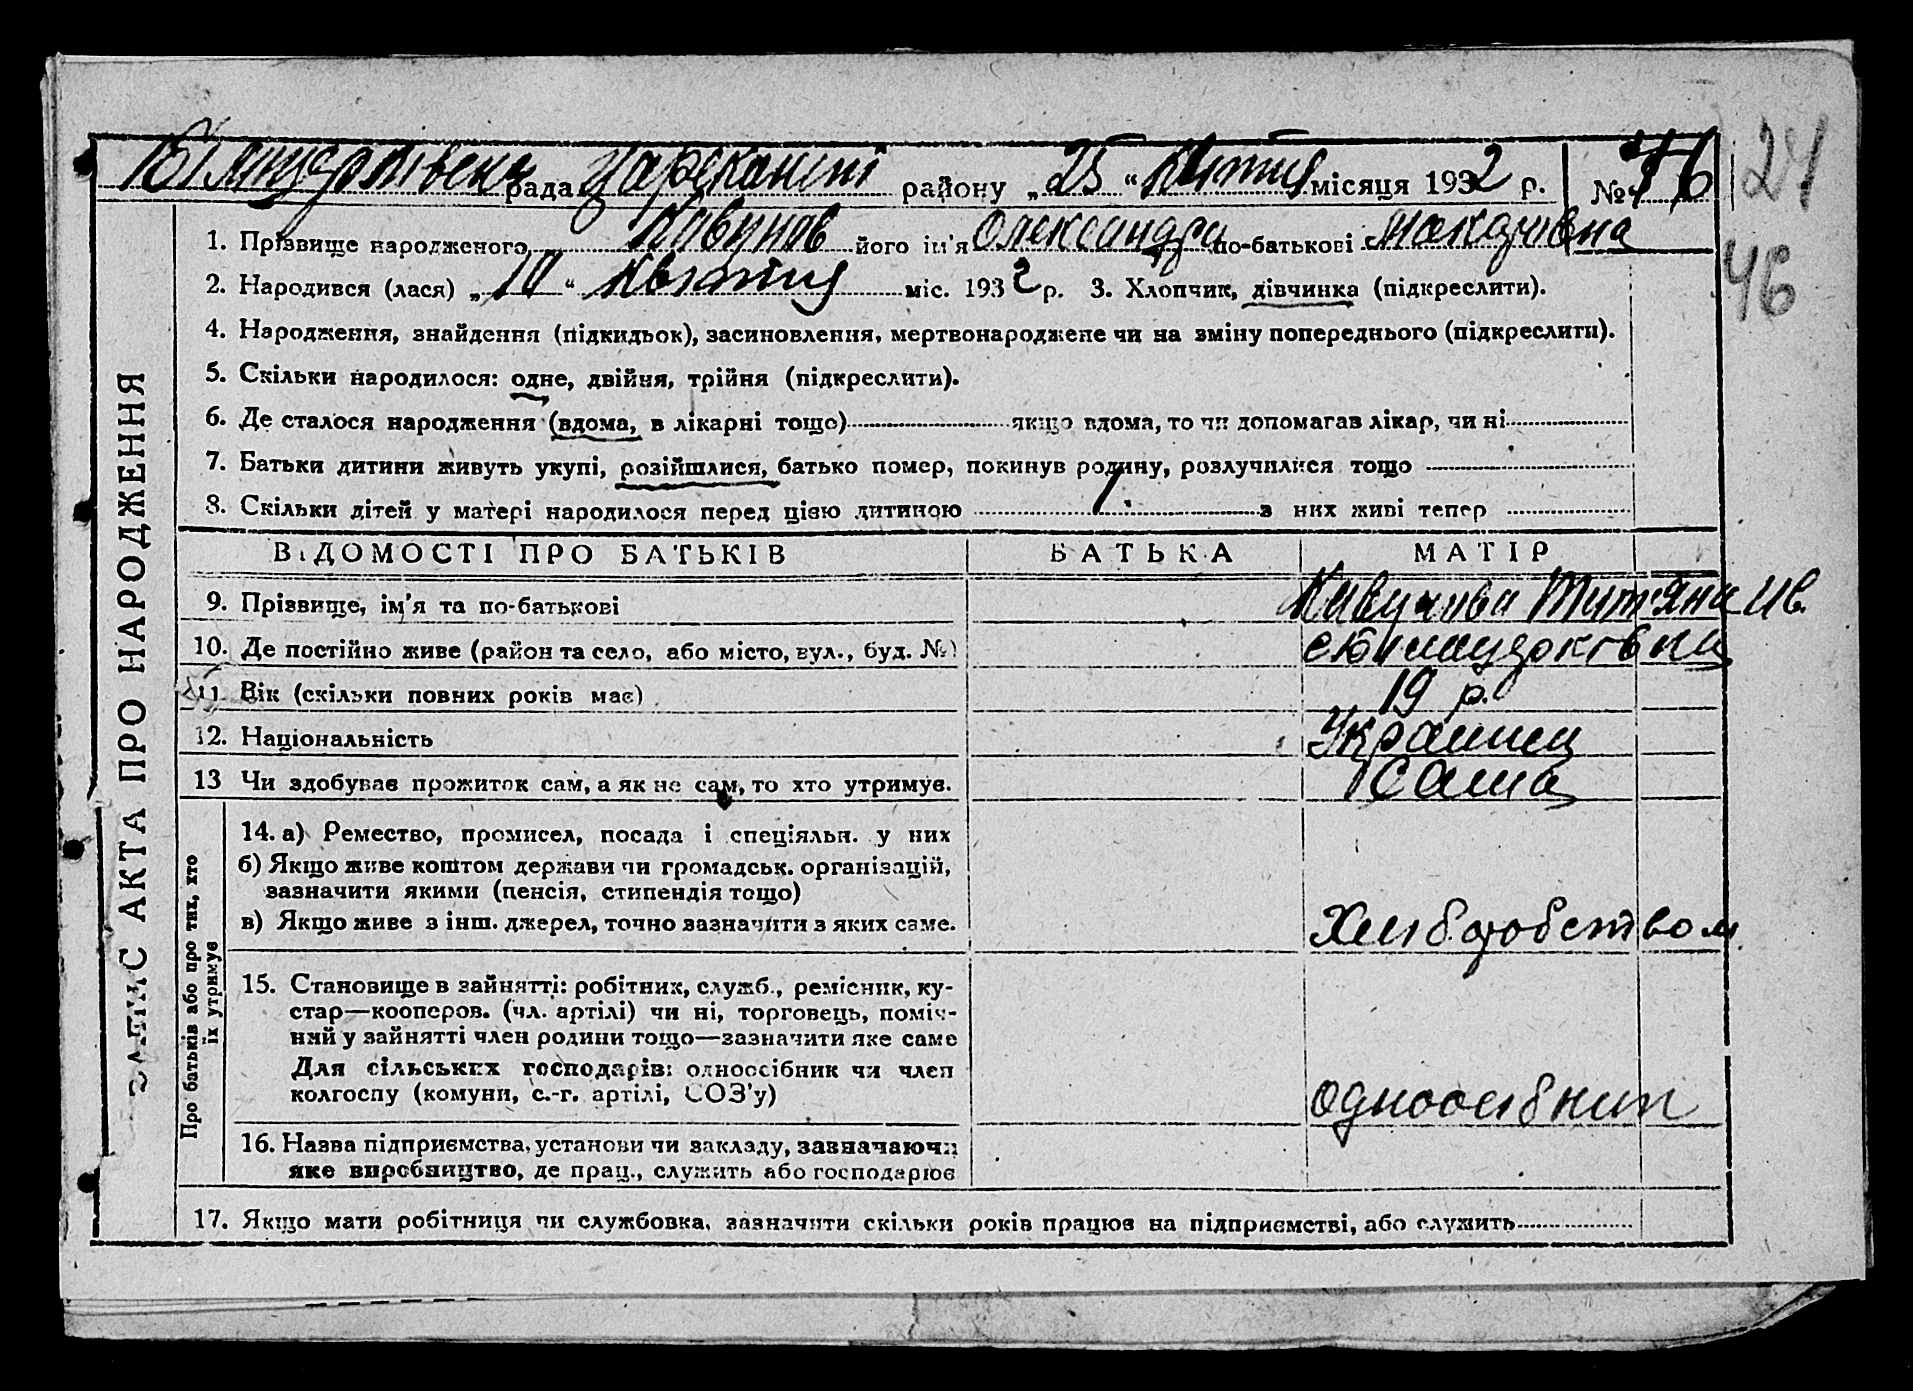 рада Царичанскі району „25“ Квітня місяця 1932 р. № 46
24
46
1. Прізвище народженого Кавунов його ім'я Олександра по-батькові Макарівна
2. Народився (лася) „10“ Квітня міс. 1932 р. 3. Хлопчик, дівчинка (підкреслити).
4. Народження, знайдення (підкидьок), засиновлення, мертвонароджене чи на зміну попереднього (підкреслити).
5. Скільки народилося: одне, двійня, трійня (підкреслити).
6. Де сталося народження (вдома, в лікарні тощо) якщо вдома, то чи допомагав лікар, чи ні
7. Батьки дитини живуть укупі, розійшлися, батько помер, покинув родину, розлучилися тощо
8. Скільки дітей у матері народилося перед цією дитиною 1. з них живі тепер
ЗАПИС АКТА ПРО НАРОДЖЕННЯ
ВІДОМОСТІ ПРО БАТЬКІВ БАТЬКА МАТІР
9. Прізвище, ім'я та по-батькові Кавунова Татяна Ив.
10. Де постійно живе (район та село, або місто, вул., буд. №)
11. Вік (скільки повних років має) 19 р.
12. Національність Украинец
13 Чи здобуває прожиток сам, а як не сам, то хто утримує. Сама
Про батьків або про тих, хто їх утримує
14. а) Ремество, промисел, посада і спеціяльн. у них
б) Якщо живе коштом держави чи громадськ. організацій,
зазначити якими (пенсія, стипендія тощо)
в) Якщо живе з інш. джерел, точно зазначити з яких саме. Хлиборобством
15. Становище в зайнятті: робітник, служб., ремісник, ку-
стар—кооперов. (чл. артілі) чи ні, торговець, поміч-
ний у зайнятті член родини тощо—зазначити яке саме
Для сільських господарів: одноосібник чи член
колгоспу (комуни, с.-г. артілі, СОЗ'у) одноосибник
16. Назва підприємства, установи чи закладу, зазначаючи
яке виробництво, де прац., служить або господарює
17. Якщо мати робітниця чи службовка, зазначити скільки років працює на підприємстві, або служить